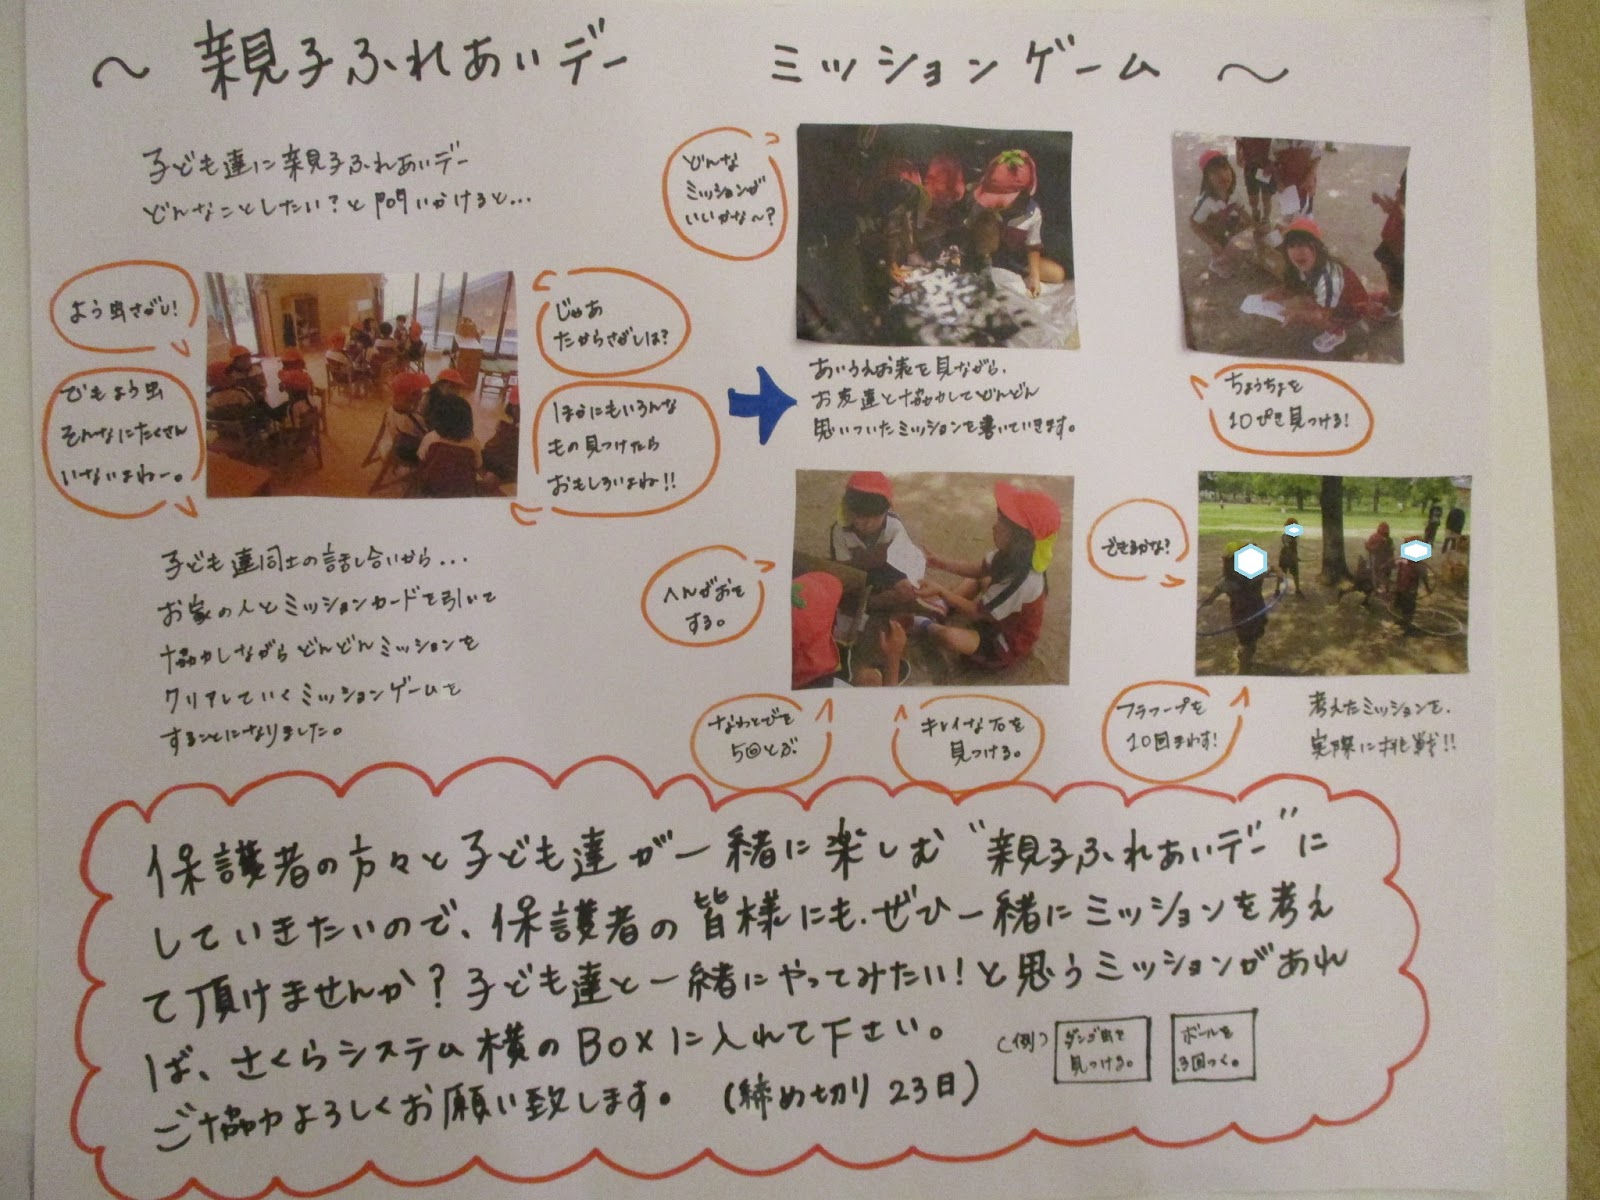 ～ 親子ふれあいデー ミッションゲーム ～
子ども達に親子ふれあいデー
どんなことしたい?と問いかけると...
よう虫さがし!
でもよう虫
そんなにたくさん
いないよねー。
じゃあ
たからさがしは?
ほかにもいろんな
もの見つけたら
おもしろいよね!!
子ども達同士の話し合いから...
お家の人とミッションカードを引いて
協力しながらどんどんミッションを
クリアしていくミッションゲームを
することになりました。
どんな
ミッションが
いいかな～?
あいうえお表を見ながら、
お友達と協力してどんどん
思いついたミッションを書いていきます。
ちょうちょを
10ぴき見つける!
へんがおを
する。
なわとびを
5回とぶ
キレイな石を
見つける。
できるかな?
フラフープを
10回まわす!
考えたミッションを、
実際に挑戦!!
保護者の方々と子ども達が一緒に楽しむ"親子ふれあいデー"に
していきたいので、保護者の皆様にも、ぜひ一緒にミッションを考え
て頂けませんか?子ども達と一緒にやってみたい!と思うミッションがあれ
ば、さくらシステム横のBoxに入れて下さい。
(例)
ダンゴ虫を
見つける。
ボールを
3回つく。
ご協力よろしくお願い致します。 (締め切り 23日)